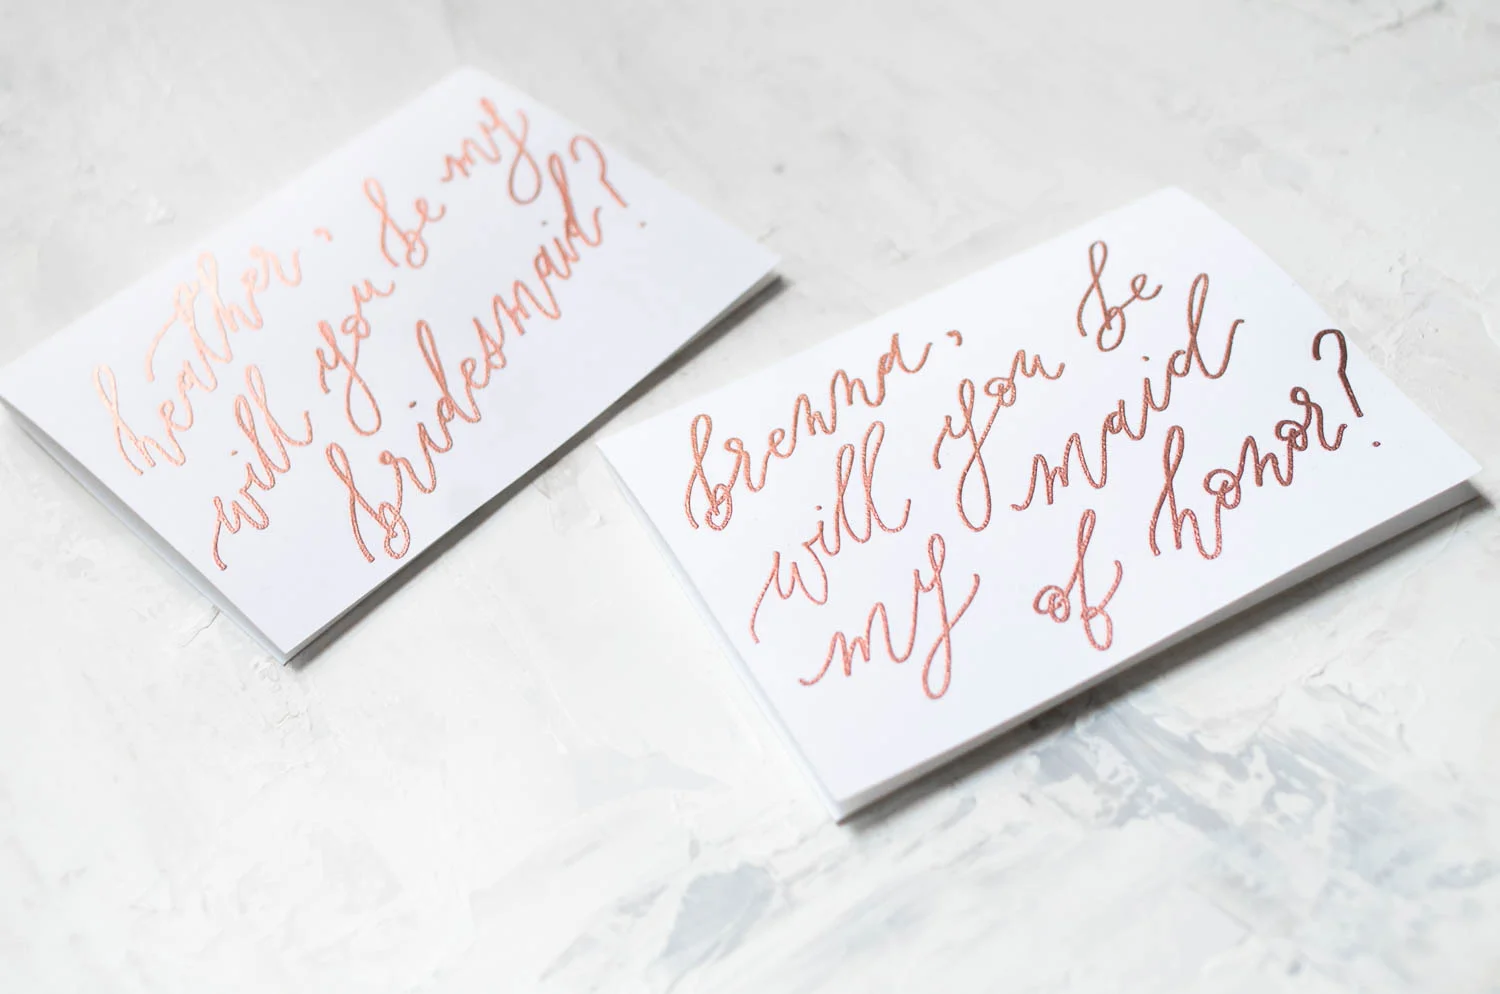 heather,
will you be my
bridesmaid?
brenna,
will you be
my maid
of honor?